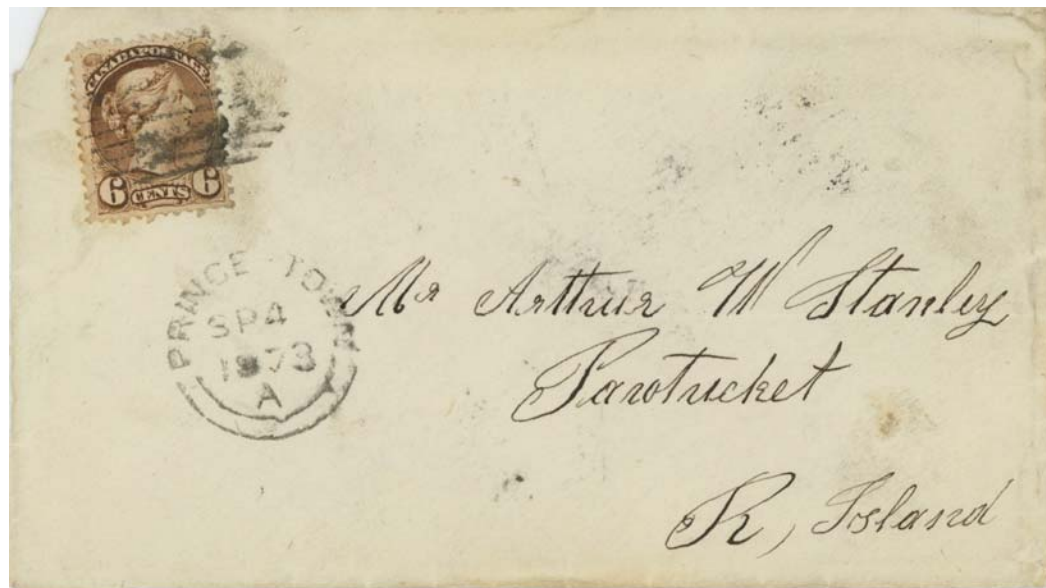 CANADA POSTAGE
6 CENTS 6
PRINCE TOWN
SP 4
1873
A
Mr Arthur W Stanley
Pawtucket
R, Island